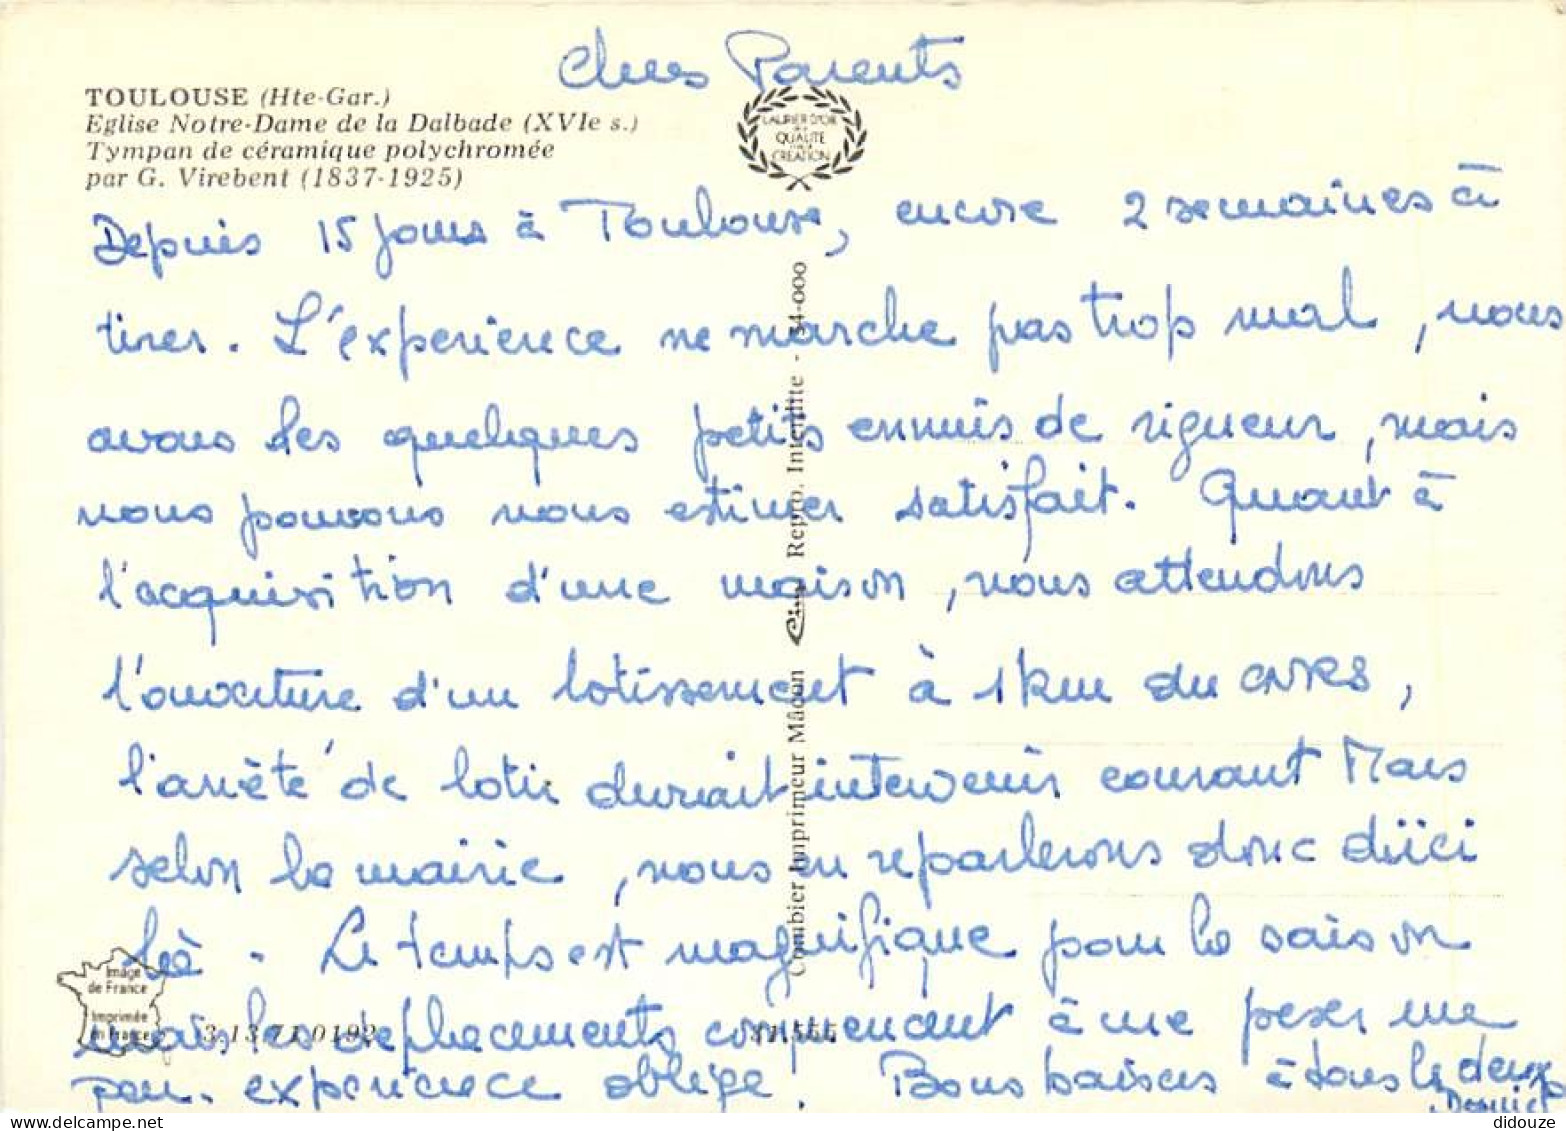 Chers Parents
TOULOUSE (Hte-Gar.)
Eglise Notre-Dame de la Dalbade (XVIe s.)
Tympan de céramique polychromée
par G. Virebent (1837-1925)
LAURIER D'OR
QUALITE
CREATION
Depuis 15 jours à Toulouse, encore 2 semaines à
tirer. L'expérience ne marche pas trop mal, nous
avons des quelques petits ennuis de rigueur, mais
nous pouvons nous estimer satisfait. Quant à
l'acquisition d'une maison, nous attendons
l'ouverture d'un lotissement à 1 km du CNRS,
l'arrêté de lotir devrait intervenir courant Mars
selon la mairie, nous en reparlerons donc d'ici
là. Le temps est magnifique pour la saison
mais les déplacements commencent à me peser une
peu. expérience oblige. Bons baisers à tous les deux
Combier Imprimeur Mâcon
Repro. Interdite - 54-000
Image
de France
Imprimée
en France
3.13.71.0192
31.555
didouze